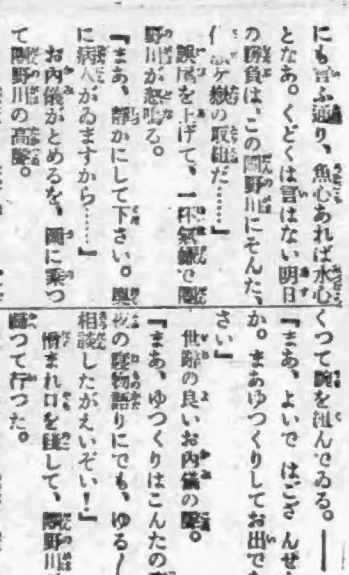 にも言ふ通り、魚心あれば水心
となあ。くどくは言はない明日
の勝負は、この關野川にそんた、
ヶ嶽の取組だ……』
誤魔を上げて、一杯氣嫌で關
野川が怒鳴る。
『まあ、靜かにして下さい。奥
に病人がゐますから……』
お内儀がとめるを、圖に乘つ
て關野川の高聲。
くつて腕を組んでゐる。――
『まあ、よいで はござんせ
か。まあゆつくりしてお出で
さい』
世辭の良いお内儀の聲。
『まあ、ゆつくりはこんたの
夜の寢物語りにでも、ゆる〱
相談したがえいぞい!』
憎まれ口を殘して、關野川
歸つて行つた。